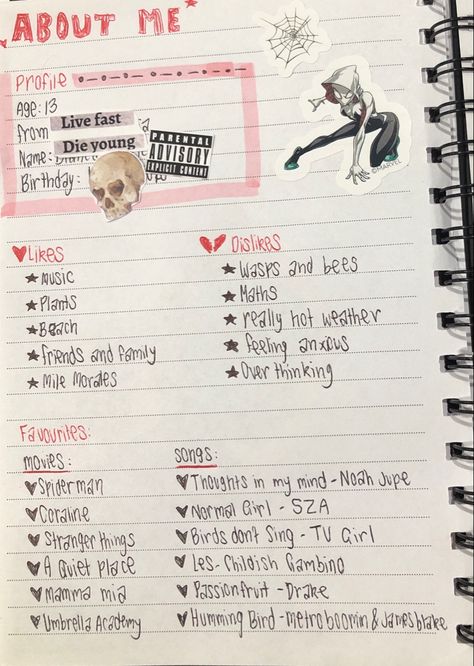 ABOUT ME
Profile
Age: 13
from
Live fast
Die young
Name:
PARENTAL
ADVISORY
EXPLICIT CONTENT
Birthday:
©MARVEL
Likes
Music
Plants
Beach
friends and family
Mile Morales
Dislikes
Wasps and bees
Maths
really hot weather
feeling anxious
Over thinking
Favourites:
movies:
Spiderman
Coraline
Stranger things
A Quiet place
Mamma mia
Umbrella Academy
songs:
Thoughts in my mind - Noah Jupe
Normal Girl - SZA
Birds don't Sing - TV Girl
Les - Childish Gambino
Passionfruit - Drake
Humming Bird - metro boomin & James blake